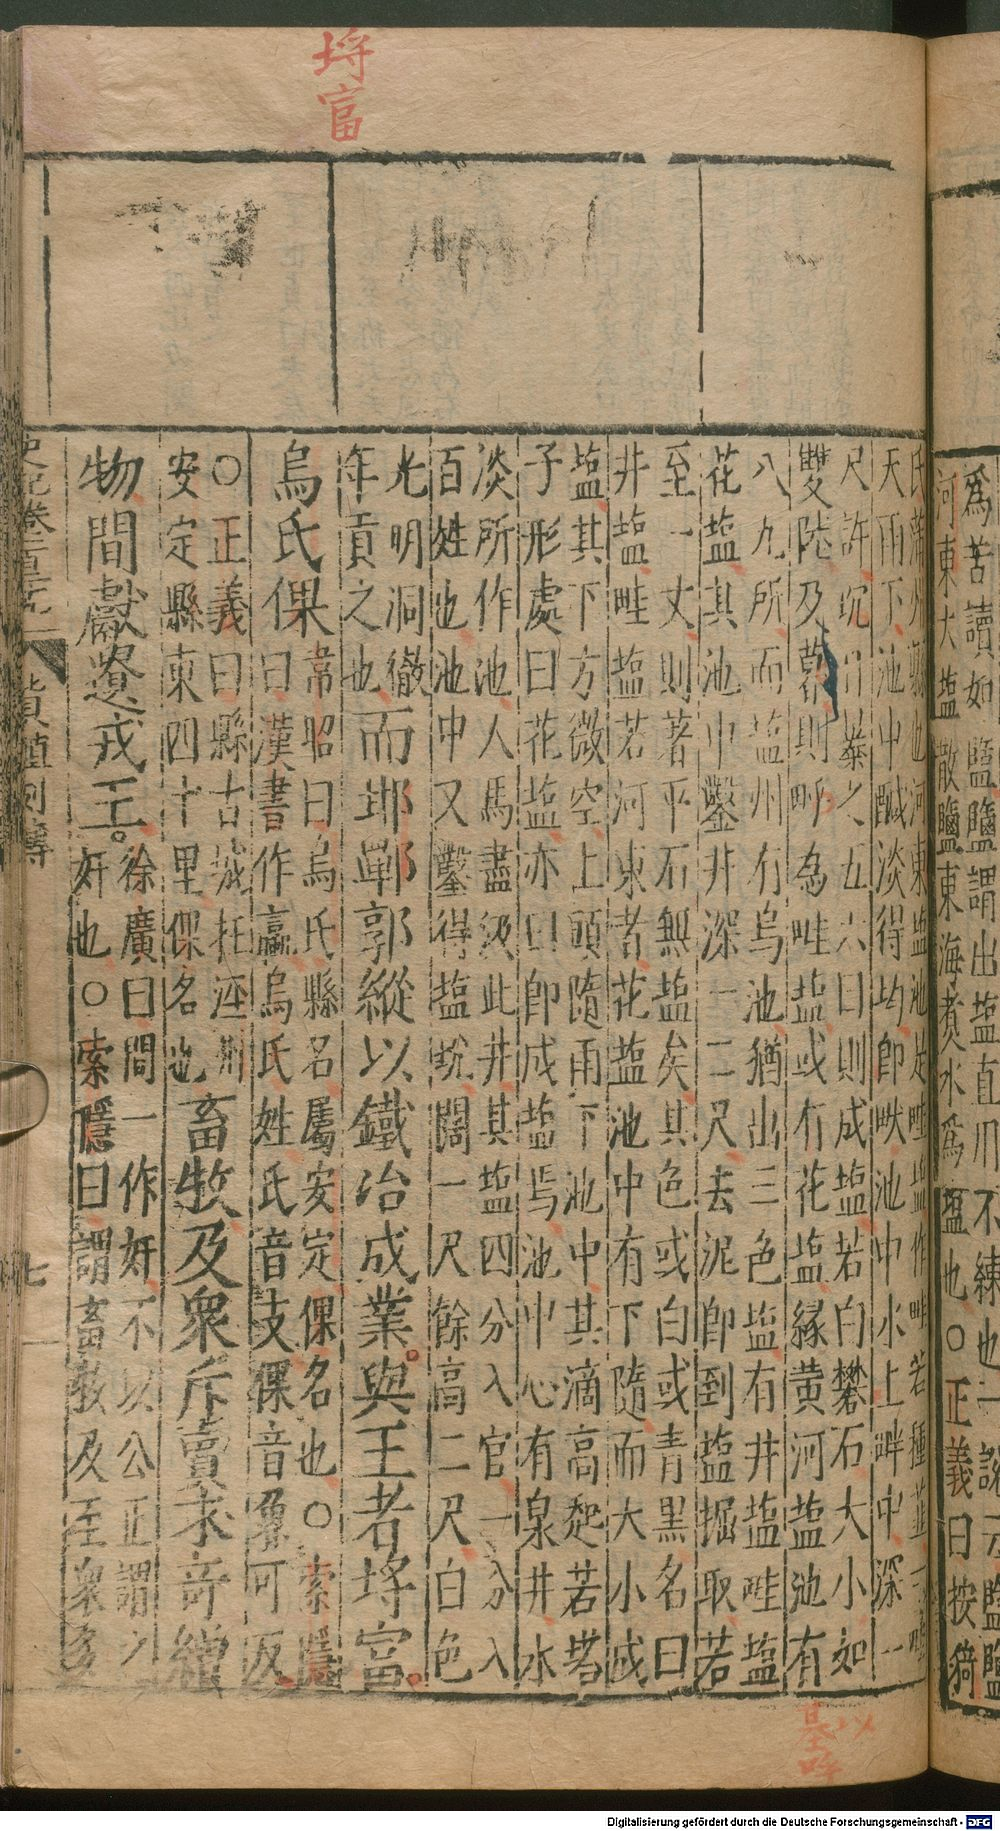 爲苦讀如鹽鹽謂出塩直川不練也一說云鹽鹽
河東大塩散鹽東海煮水爲塩也○正義曰按猗
埓富
氏蒲州縣也河東塩池是畦塩作畦若種韮一畦
天雨下池中醎淡得均即畎池中水上畔中深一
尺許坑日暴之五六日則成塩若白礬石大小如
雙陸及碁則呼為畦塩或有花塩緣黃河塩池有
八九所而塩州有烏池猶出三色塩有井塩畦塩
花塩其池中鑿井深一二尺去泥即到塩掘取若
至一丈則著平石無塩矣其色或白或青黑名曰
井塩畦塩若河東者花塩池中有下隨而大小成
塩其下方微空上頭隨雨下池中其滴高起若塔
子形處曰花塩亦曰即成塩焉池中心有泉井水
淡所作池人馬盡汲此井其塩四分入官一分入
百姓也池中又鑿得塩塊闊一尺餘高二尺白色
光明洞徹
年貢之也
而邯鄲郭縱以鐵冶成業與王者埓富
烏氏倮
韋昭曰烏氏縣名屬安定倮名也○索隱
曰漢書作臝烏氏姓氏音支倮音魯可反
○正義曰縣古城在涇州
安定縣東四十里倮名也
畜牧及衆斥賣求奇繒
物間獻遺戎王
徐廣曰間一作奸不以公正謂之
奸也○索隱曰謂畜牧及至衆多
貨殖列傳
七
Digitalisierung gefördert durch die Deutsche Forschungsgemeinschaft - DFG